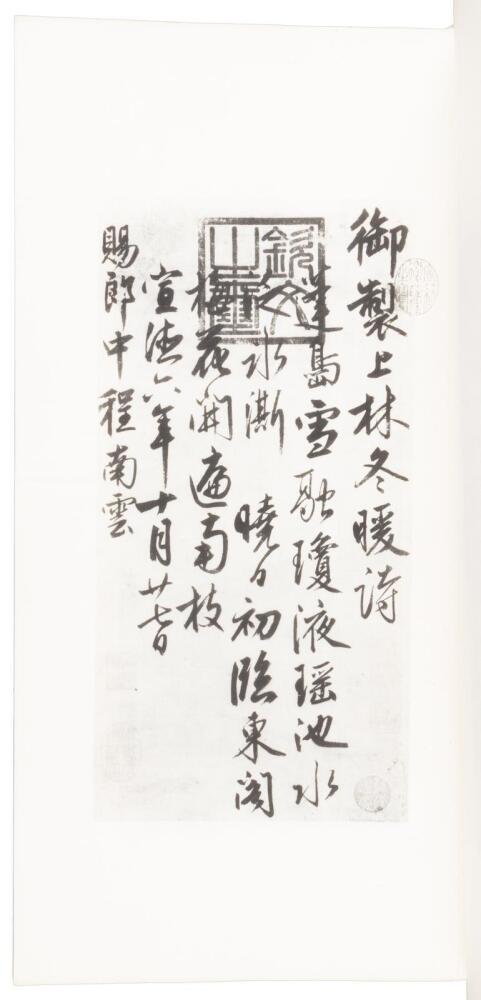 御製上林冬暖詩
蓬島雪融瓊液瑤池水
冰澌 曉日初臨東閣
梅花開遍南枝
宣德六年十月廿七日
賜郎中程南雲
欽文之璽